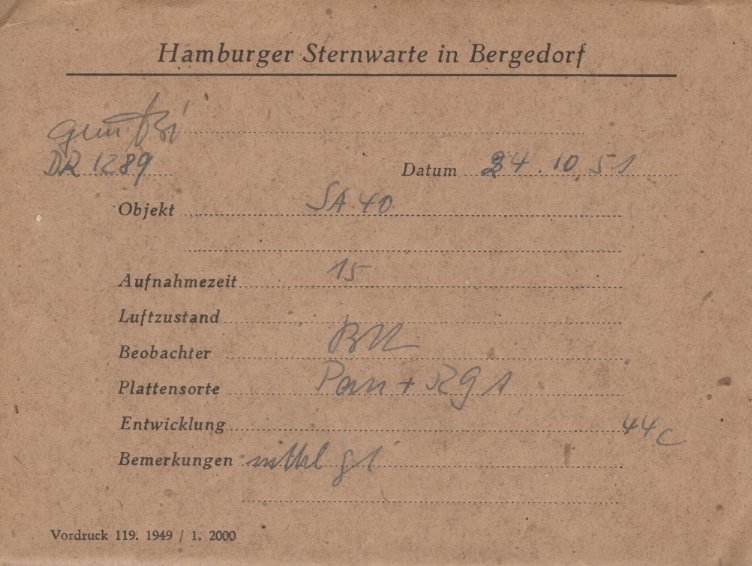 Hamburger Sternwarte in Bergedorf
DR 1289
Datum 24.10.51
Objekt SA 40
Aufnahmezeit 15
Luftzustand
Beobachter
Plattensorte Pan + RG 1
Entwicklung 44c
Bemerkungen
Vordruck 119. 1949 / 1. 2000